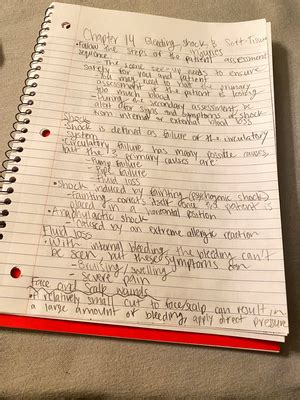 Chapter 14 Bleeding, shock, & Soft-Tissue
Injuries
• Follow the steps of the patient assessment
sequence
- The scene size-up needs to ensure
safety for you and patient
- You may need to halt the primary
assessment if the patient is losing
too much blood
- During the secondary assessment, be
alert for signs and symptoms of shock
from internal & external blood loss
Shock
• Shock is defined as failure of the circulatory
system
• Circulatory failure has many possible causes
but the 3 primary causes are:
- Pump failure
- Pipe failure
- Fluid loss
• Shock induced by fainting (psychogenic shock)
- Fainting corrects itself once the patient is
placed in a horizontal position
• Anaphylactic shock
- Caused by an extreme allergic reaction
Fluid loss
• With internal bleeding the bleeding can't
be seen, but these symptoms can
- Bruising/swelling
- severe pain
Face and Scalp wounds
• A relatively small cut to face/scalp can result in
a large amount of bleeding, apply direct pressure